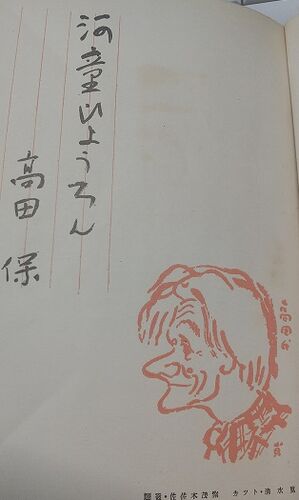 河童ひょうろん
高田保
高田氏
題簽・佐佐木茂索 カット・清水崑